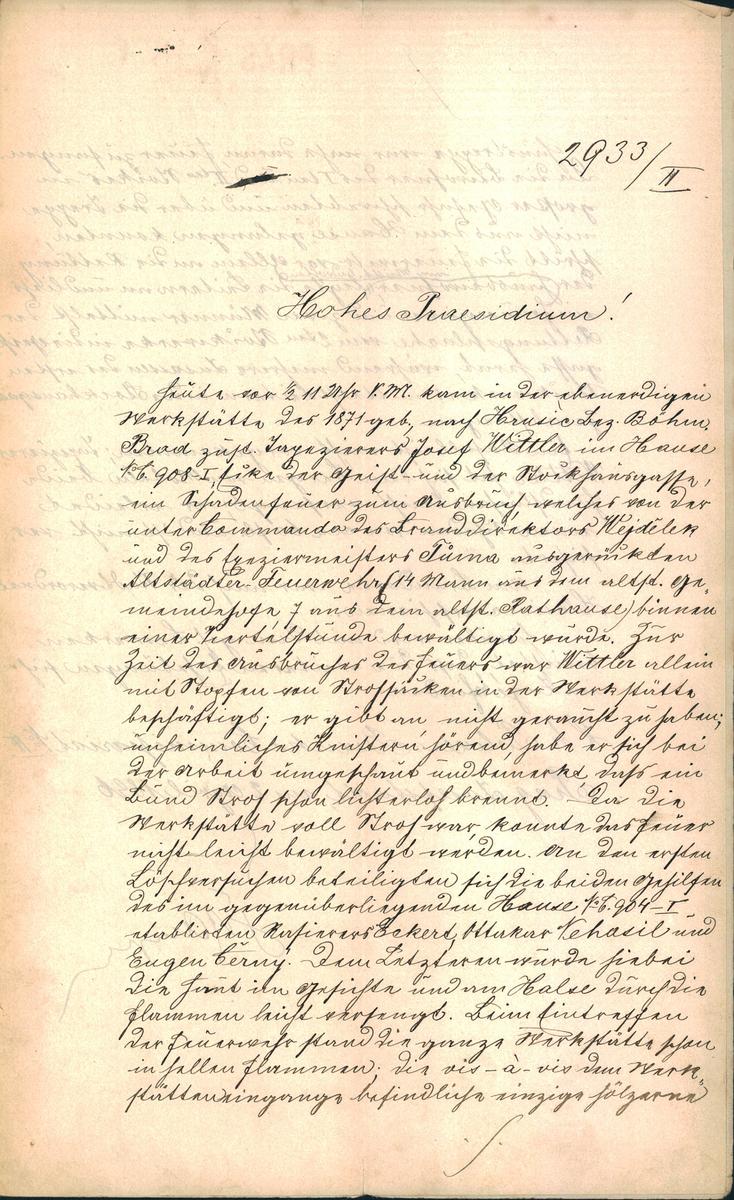 2933/II
Hohes Praesidium!
Heute vor ½ 11 Uhr V. M. kam in der ebenerdigen
Werkstätte des 1871 geb., nach Hrusic Bez. Böhm.
Brod zust. Tapezierers Josef Wittler im Hause
N.C. 908-I, Ecke der Geist- und der Stockhausgasse,
ein Schadenfeuer zum Ausbruch welches von der
unter Commando des Branddirektors Wejdělek
und des Exerziermeisters Tůma ausgerückten
Altstädter-Feuerwehr (14 Mann aus dem altst. Ge-
meindehofe 7 aus dem altst. Rathause) binnen
einer Viertelstunde bewältigt wurde. Zur
Zeit des Ausbruches des Feuers war Wittler allein
mit Stopfen von Strohsäcken in der Werkstätte
beschäftigt; er gibt an, nicht geraucht zu haben;
unheimliches Knistern hörend, habe er sich bei
der Arbeit umgeschaut und bemerkt, dass ein
Bund Stroh schon lichterloh brennt. Da die
Werkstätte voll Stroh war, konnte das Feuer
nicht leicht bewältigt werden. An den ersten
Löschversuchen beteiligten sich die beiden Gehilfen
des im gegenüberliegenden Hause N.C. 904-I
etablirten Rasierers Eckert, Ottakar Nehasil und
Eugen Černý. Dem Letzteren wurde hiebei
die Haut im Gesichte und am Halse durch die
Flammen leicht versengt. Beim Eintreffen
der Feuerwehr stand die ganze Werkstätte schon
in hellen Flammen; die vis-à-vis dem Werk-
stätteneingange befindliche einzige hölzerne